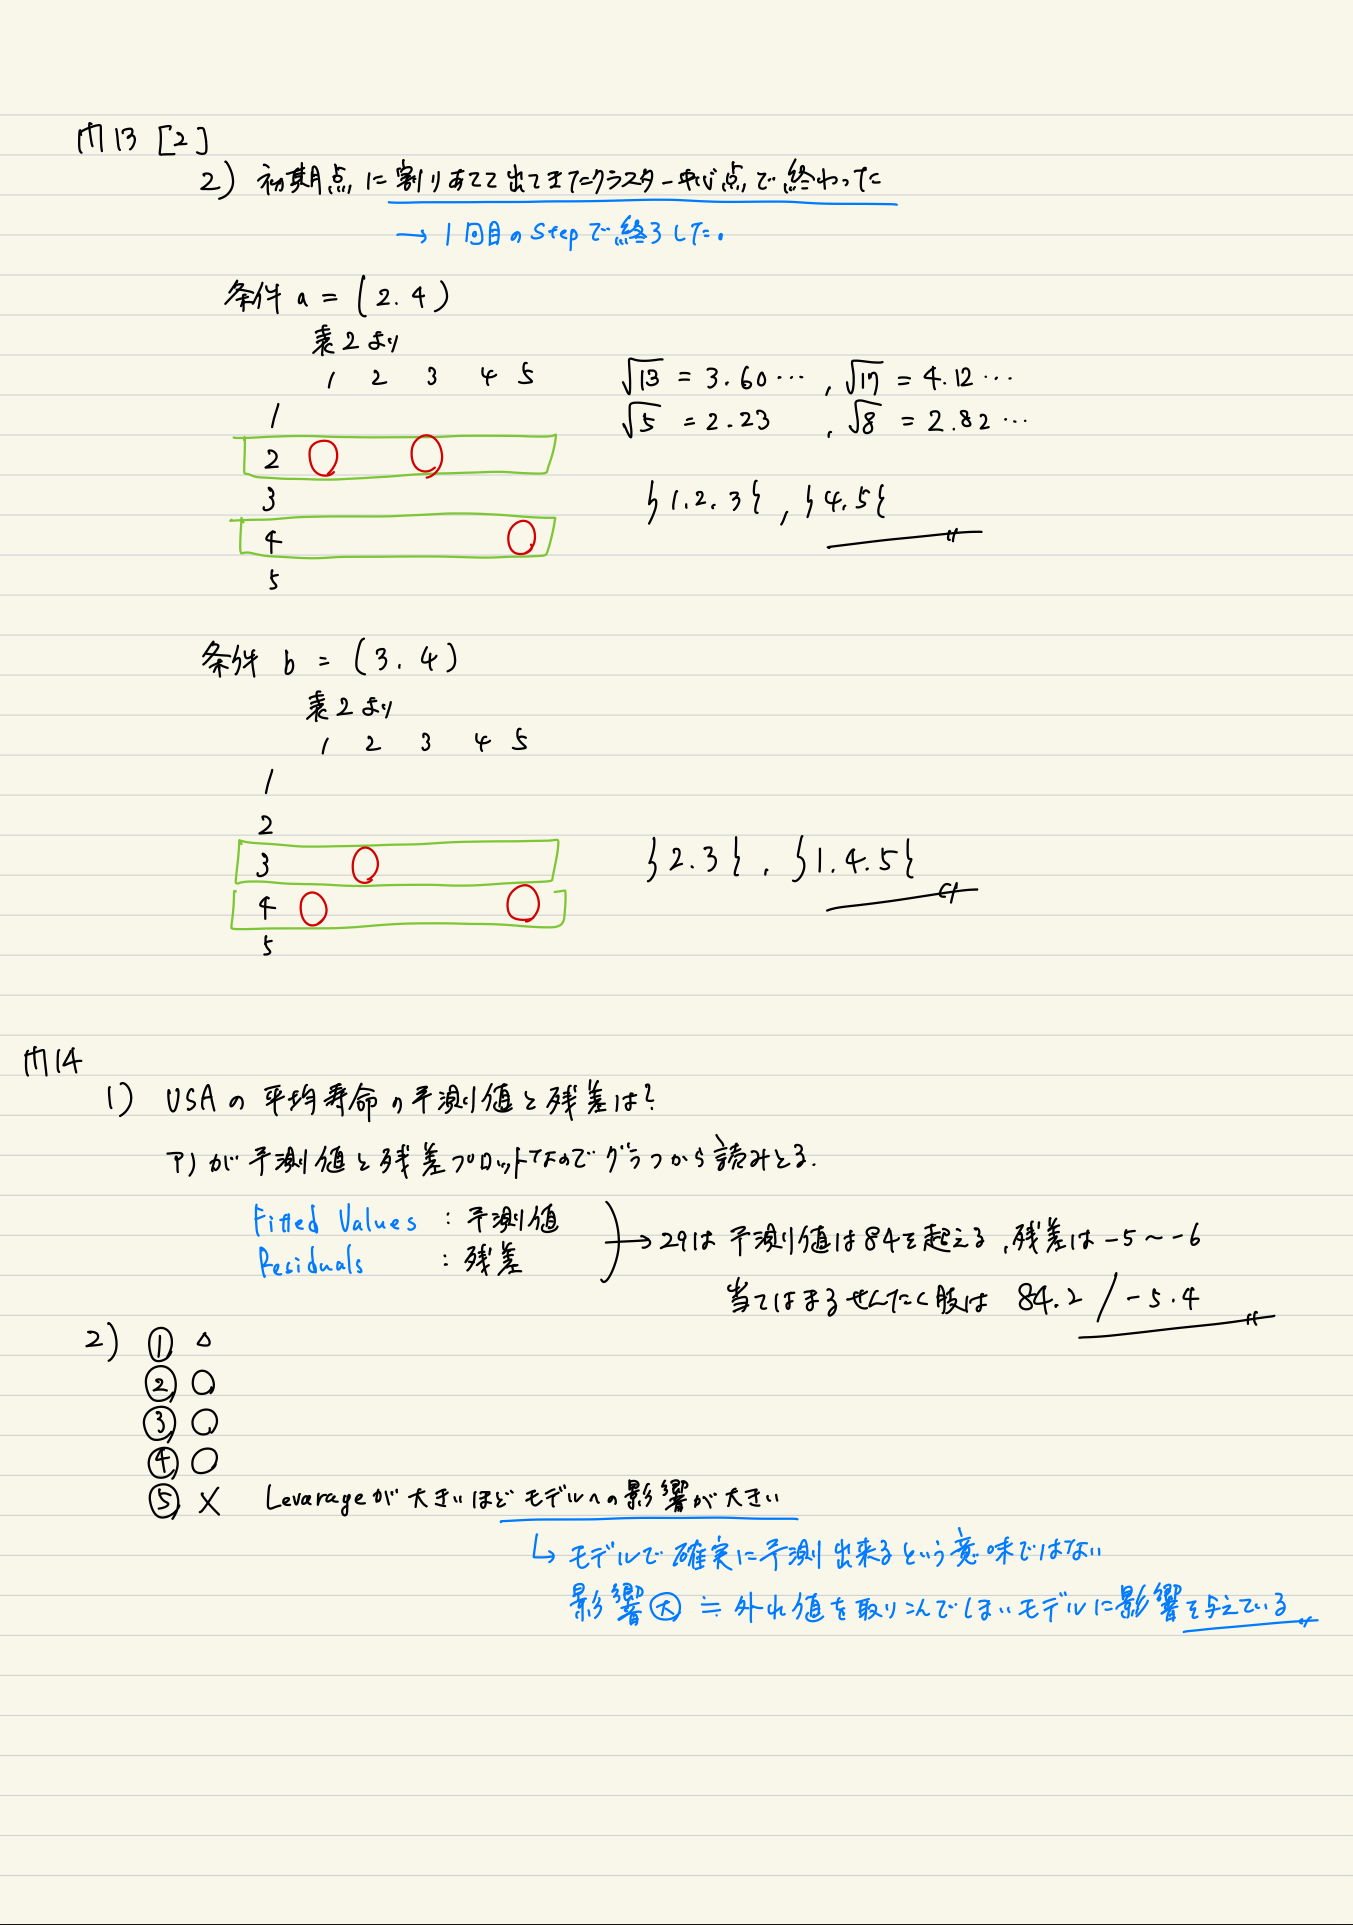 問13 [2]
2) 初期点に割りあてて出てきたクラスター中心点で終わった
→ 1回目のStepで終了した。
条件 a = (2.4)
表2より
1 2 3 4 5
√13 = 3.60… , √17 = 4.12…
1
√5 = 2.23 , √8 = 2.82…
2
3
{1.2.3} , {4.5}
4
5
条件 b = (3.4)
表2より
1 2 3 4 5
1
2
3
{2.3} , {1.4.5}
4
5
問14
1) USAの平均寿命の予測値と残差は?
ア)が予測値と残差プロットなのでグラフから読みとる.
Fitted Values : 予測値
Residuals : 残差
→ 29は予測値は84を起える,残差は-5~-6
当てはまるせんたく肢は 84.2 / -5.4
2) ① △
② ○
③ ○
④ ○
⑤ × Levarageが大きいほどモデルへの影響が大きい
↳ モデルで確実に予測出来るという意味ではない
影響大 ≒ 外れ値を取りこんでしまいモデルに影響を与えている